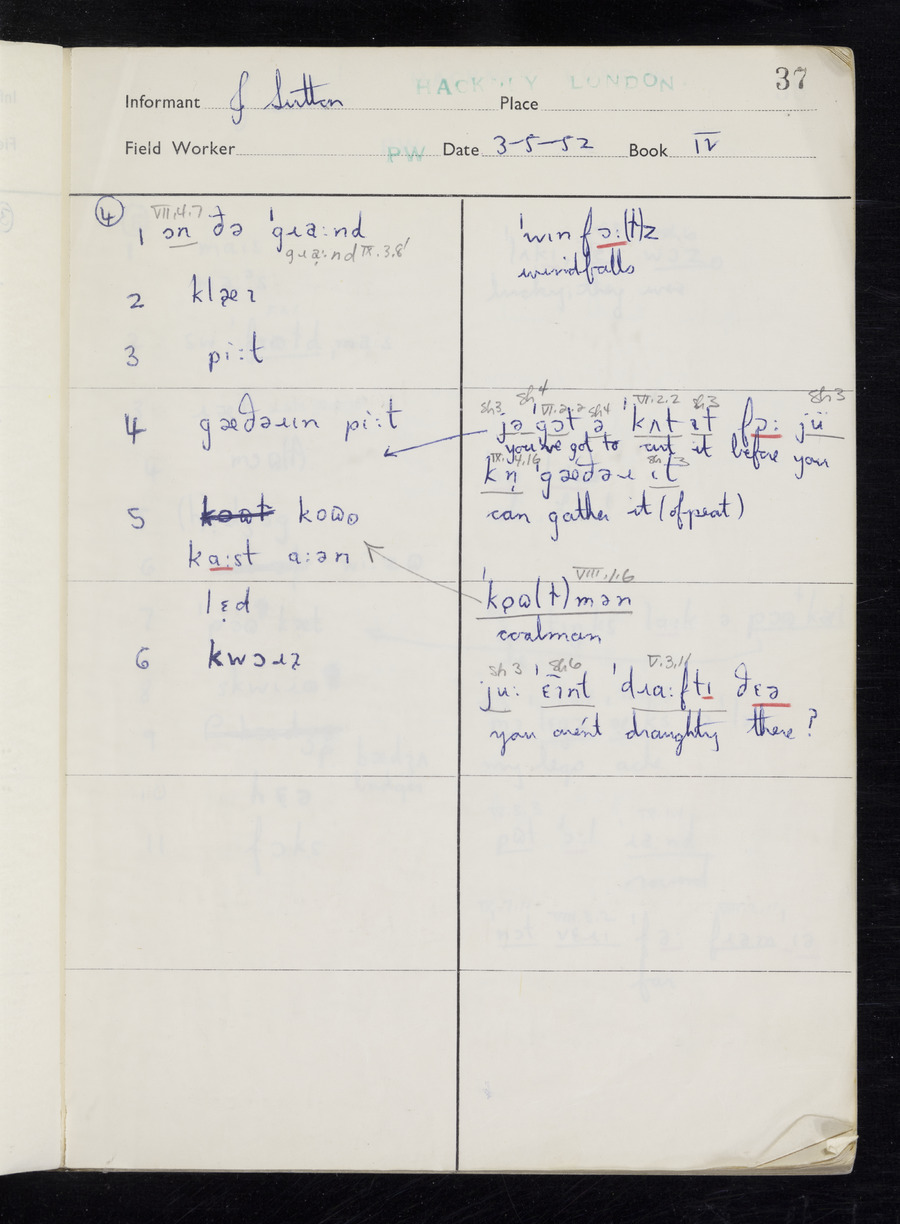 HACKNEY LONDON
37
Informant J Sutton Place
Field Worker PW Date 3-5-52 Book IV
④ VII.4.7
1 ɔn ðə ˈgɹaːnd
gɹaːnd IX.3.8
2 klæɪ
3 piːt
4 gæðəɹɪn piːt
5 koɷ
kaːst aːən
lɛd
6 kwɔɹɪ
ˈwɪnfɔː(ɫ)z
windfalls
sh 3 sh 4 VI.2.2 sh 4 VII.2.2 sh 3 sh 3
jə ˈgɔt ə ˈkʌt ɪt fɔː jü
you've got to cut it before you
IX.4.16 sh 3
kn̩ ˈgæðəɹ ɪt
can gather it (of peat)
VIII.1.6
ˈkoɷ(ɫ)mən
coalman
sh 3 sh 6 V.3.11
juː ˈɛ̄ɪnt ˈdɹaːftɪ ðɛə
you aren't draughty there?